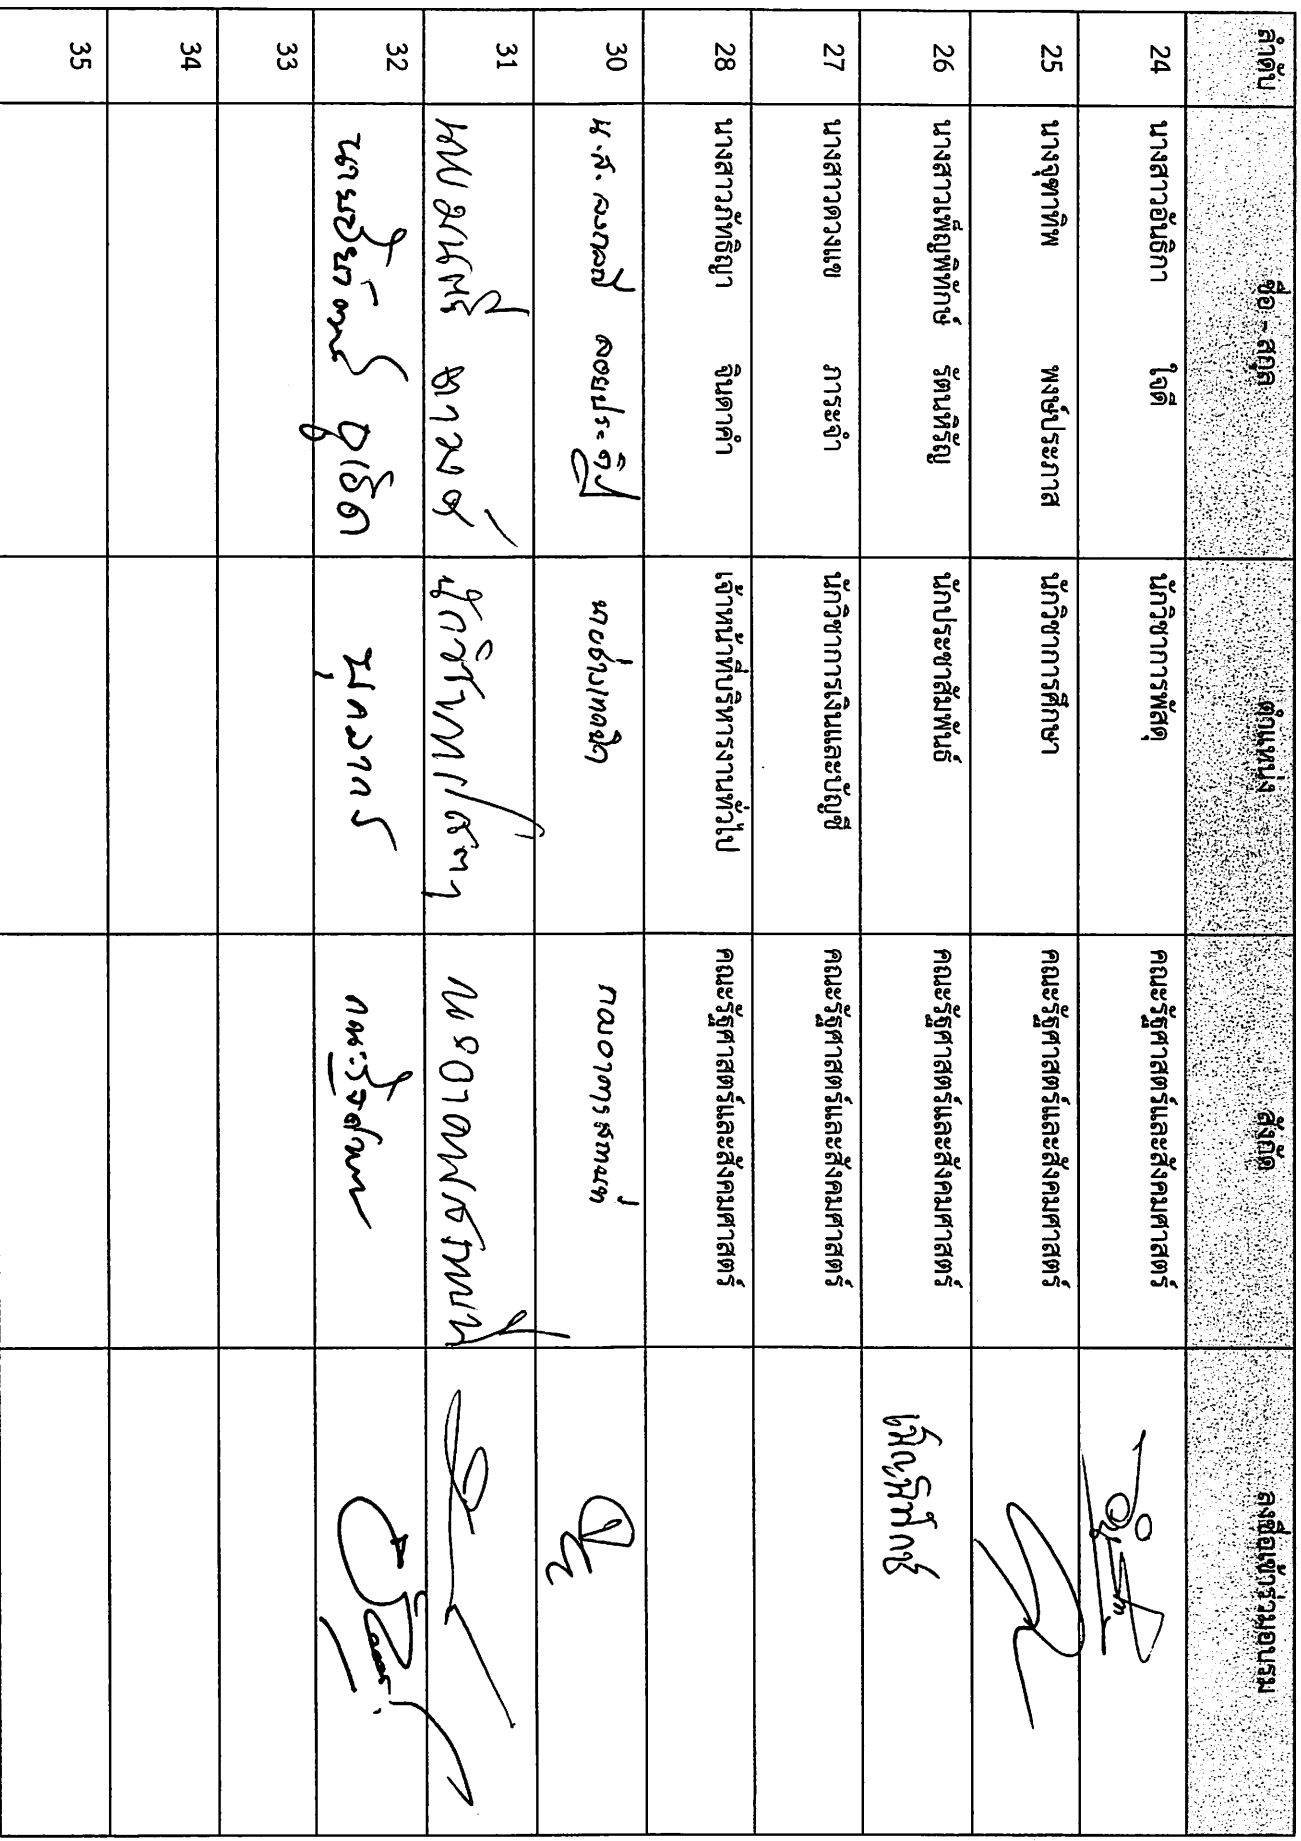 ลำดับ ชื่อ - สกุล ตำแหน่ง สังกัด ลงชื่อเข้าร่วมอบรม
24 นางสาวอันธิกา ใจดี นักวิชาการพัสดุ คณะรัฐศาสตร์และสังคมศาสตร์
25 นางจุฑาทิพ พงษ์ประภาส นักวิชาการศึกษา คณะรัฐศาสตร์และสังคมศาสตร์
26 นางสาวเพ็ญพิทักษ์ รัตนหิรัญ นักประชาสัมพันธ์ คณะรัฐศาสตร์และสังคมศาสตร์ เพ็ญพิทักษ์
27 นางสาวดวงแข ภาระจำ นักวิชาการเงินและบัญชี คณะรัฐศาสตร์และสังคมศาสตร์
28 นางสาวภัทธิญา จินดาคำ เจ้าหน้าที่บริหารงานทั่วไป คณะรัฐศาสตร์และสังคมศาสตร์
30 น.ส. ลอยประทีป นายช่างเทคนิค กองอาคารสถานที่
31
32 บุคลากร
33
34
35